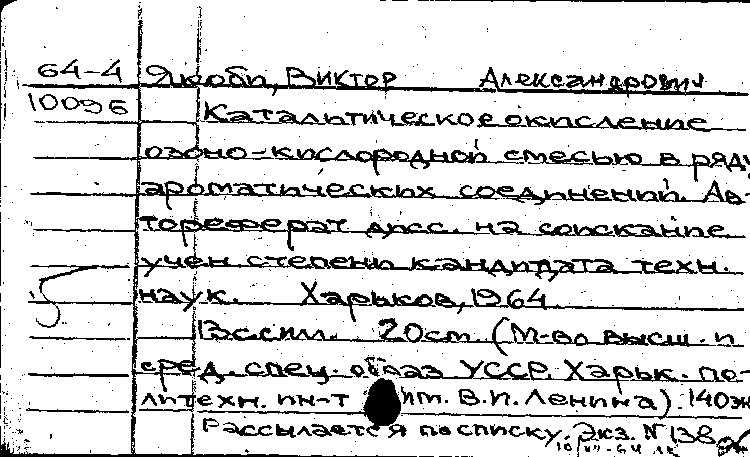 64-4 Якоби, Виктор Александрович
10096 Каталитическое окисление
озоно-кислородной смесью в ряду
ароматических соединений. Ав-
тореферат дисс. на соискание
учен. степени кандидата техн.
наук. Харьков, 1964.
13с. с илл. 20см. (М-во высш. и
сред. спец. образ УССР. Харьк. по-
литехн. ин-т им. В.И. Ленина). 140экз
Рассылается по списку. Экз. N 138